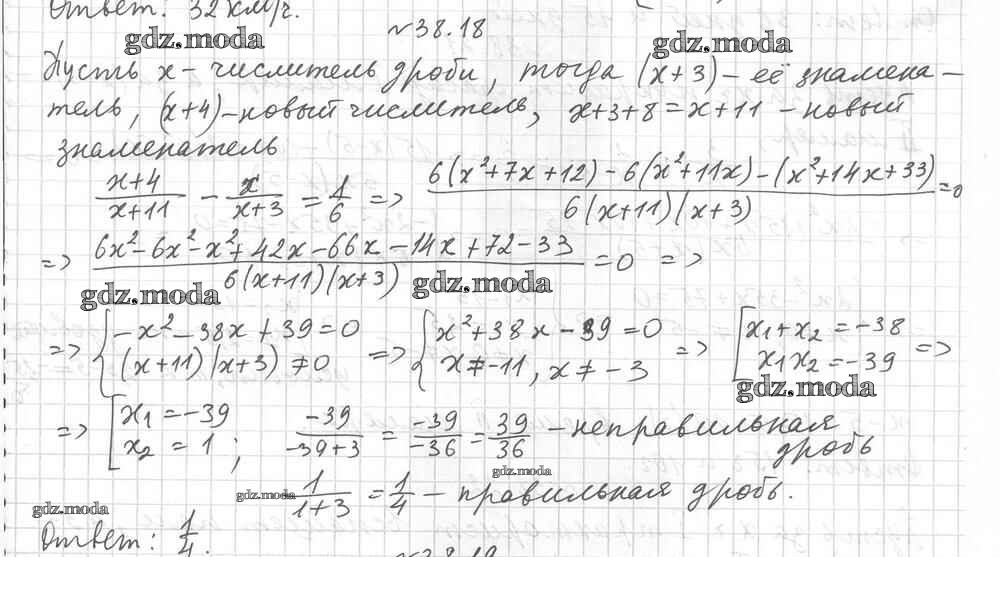 Ответ: 32 км/ч.
№38.18
gdz.moda gdz.moda
Пусть x – числитель дроби, тогда (x+3) – её знамена-
тель, (x+4) – новый числитель, x+3+8=x+11 – новый
знаменатель
(x+4)/(x+11) – x/(x+3) = 1/6 => (6(x²+7x+12)–6(x²+11x)–(x²+14x+33))/(6(x+11)(x+3)) = 0
=> (6x²–6x²–x²+42x–66x–14x+72–33)/(6(x+11)(x+3)) = 0 =>
gdz.moda gdz.moda
=> { –x²–38x+39=0 => { x²+38x–39=0 => [ x₁+x₂=–38
(x+11)(x+3)≠0 x≠–11, x≠–3 x₁x₂=–39 =>
gdz.moda
=> [ x₁=–39 –39/(–39+3) = –39/–36 = 39/36 – неправильная
x₂=1; дробь
gdz.moda
gdz.moda 1/(1+3) = 1/4 – правильная дробь.
gdz.moda
Ответ: 1/4.